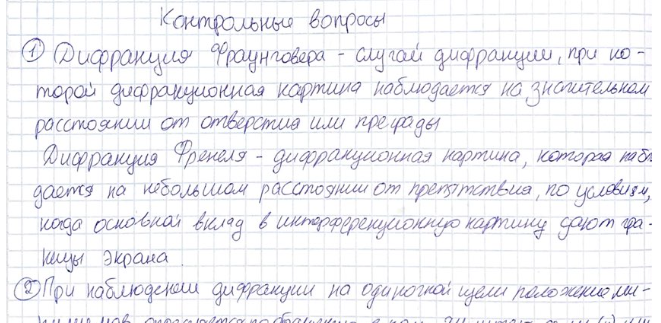 Контрольные вопросы
① Дифракция Фраунговера - случай дифракции, при ко-
торой дифракционная картина наблюдается на значительном
расстоянии от отверстия или преграды
Дифракция Френеля - дифракционная картина, которая набл
дается на небольшом расстоянии от препятствия, по условиям,
когда основной вклад в интерференционную картину дают гра-
ницы экрана.
② При наблюдении дифракции на одиночной щели положение ми-